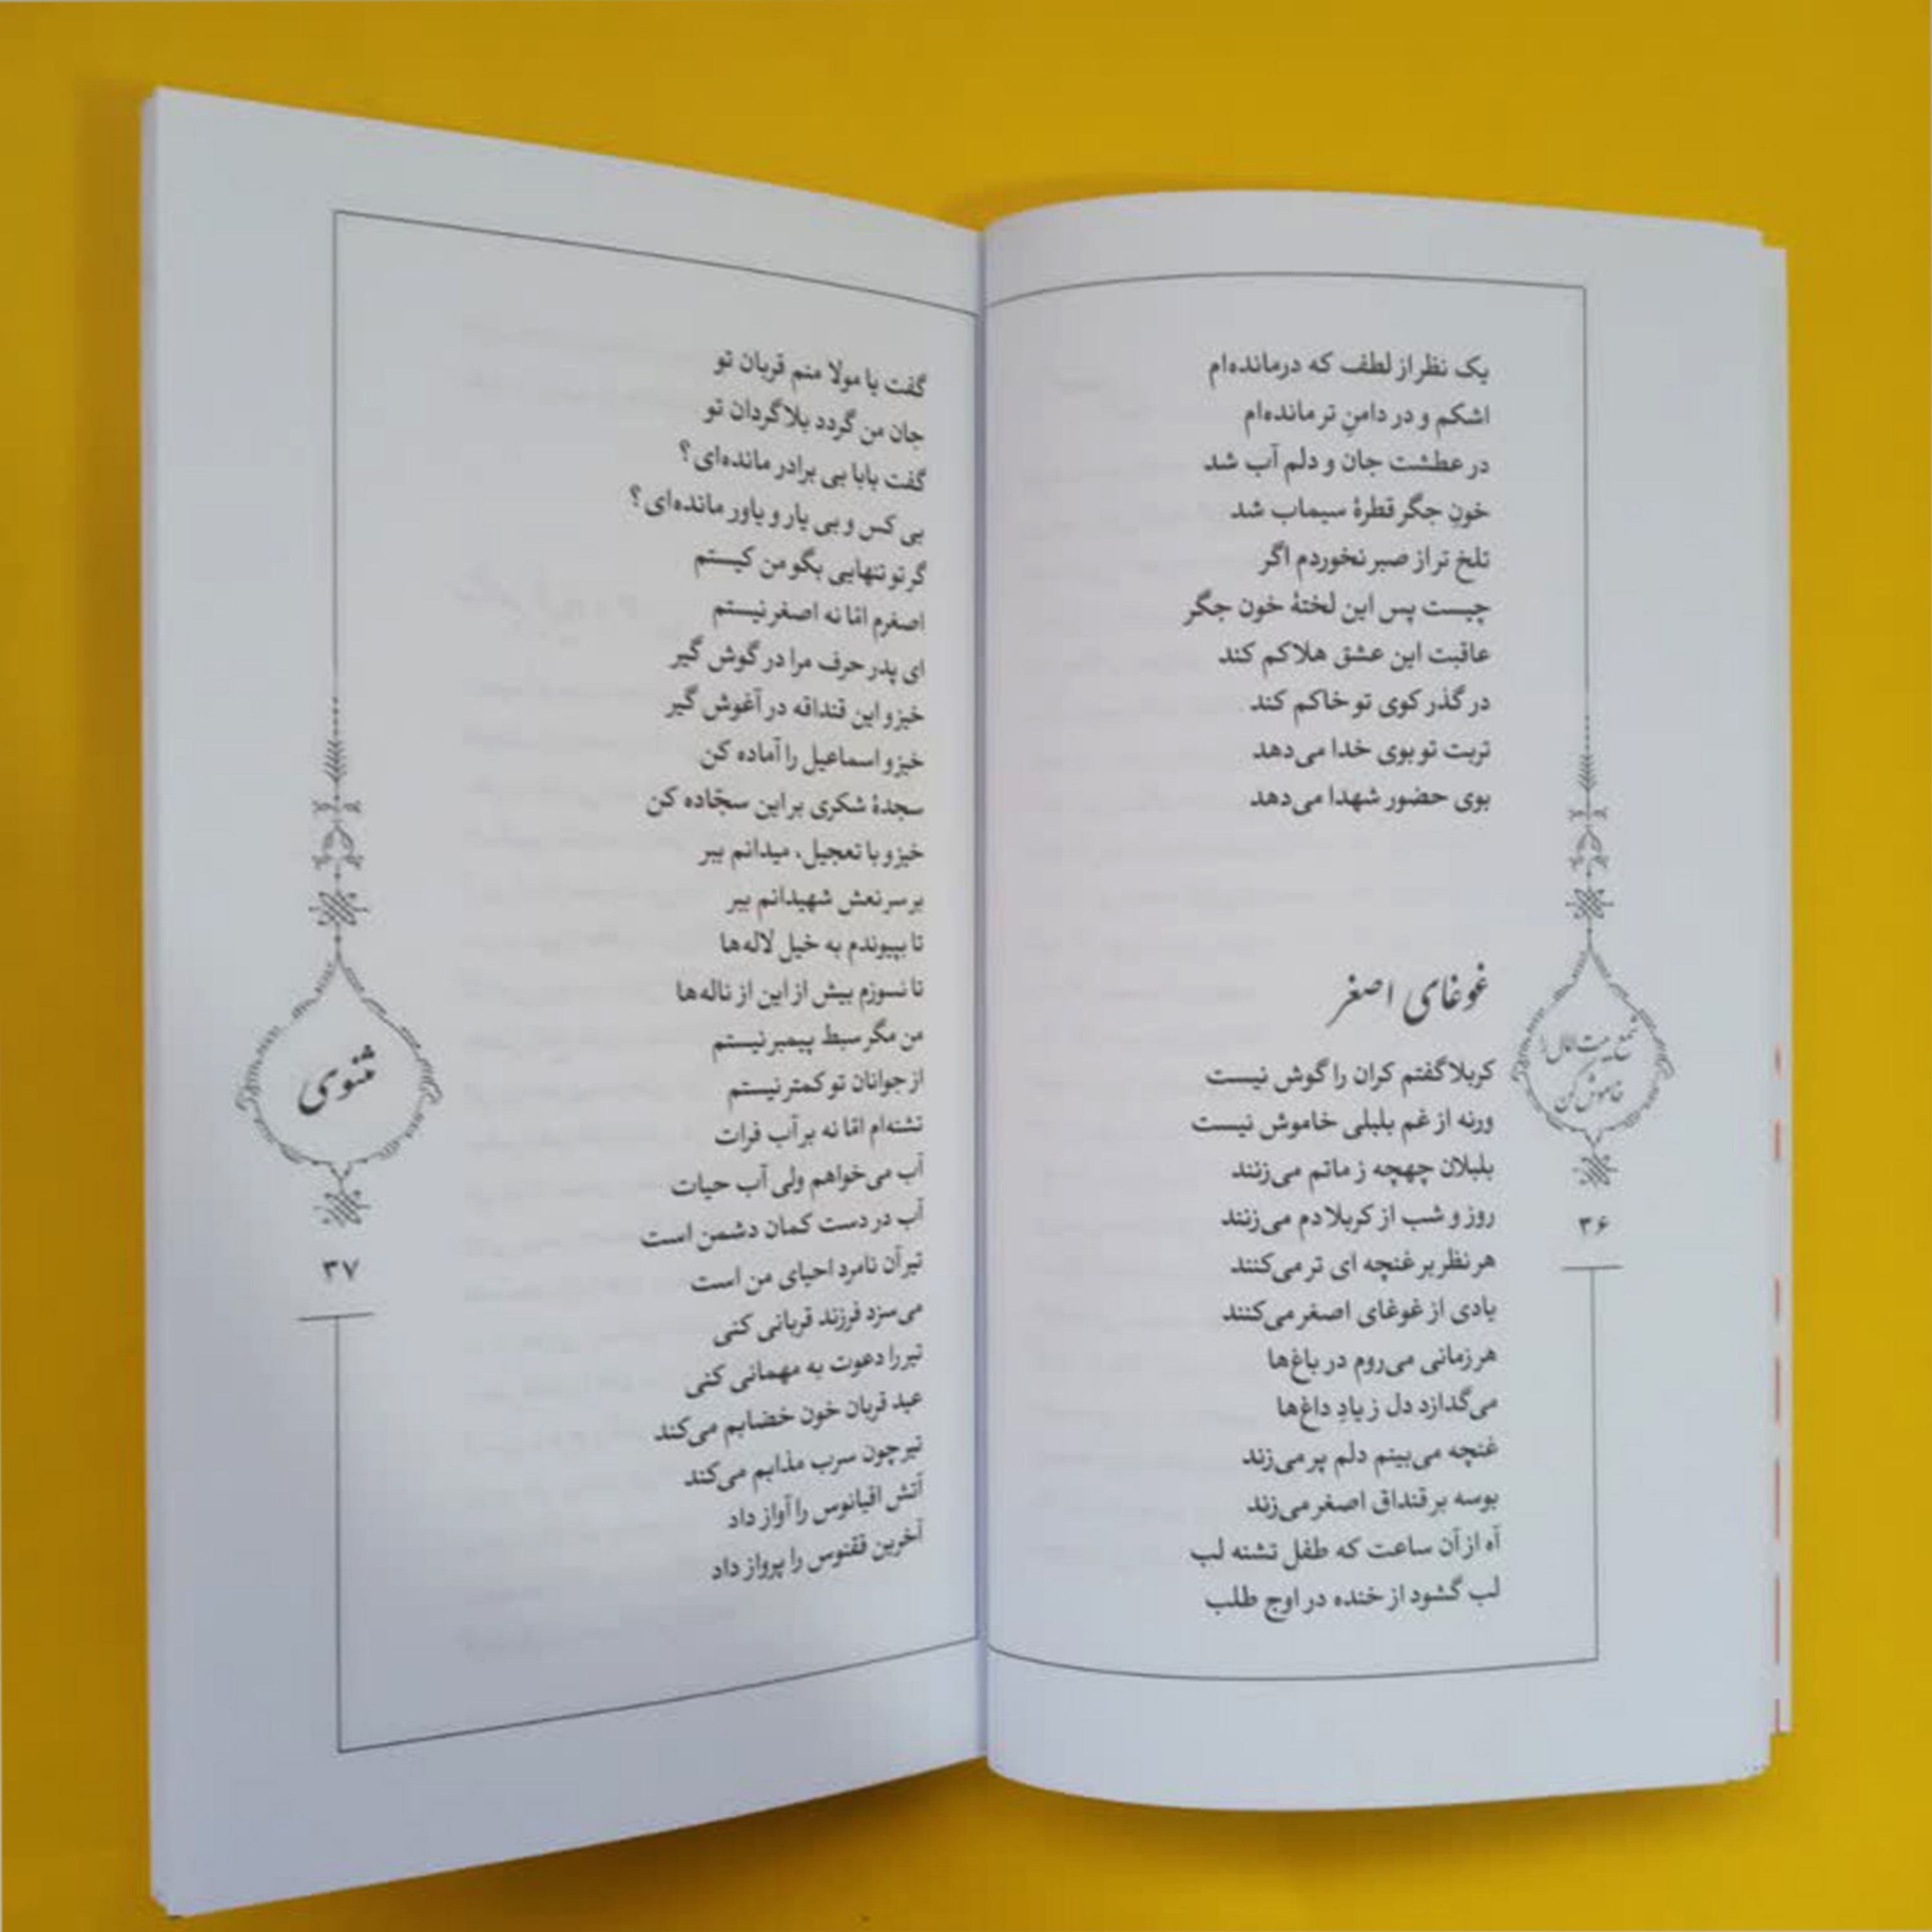 یک نظر از لطف که درمانده‌ام
اشکم و در دامنِ تر مانده‌ام
در عطشت جان و دلم آب شد
خونِ جگر قطرهٔ سیماب شد
تلخ تر از صبر نخوردم اگر
چیست پس این لختهٔ خون جگر
عاقبت این عشق هلاکم کند
در گذر کوی تو خاکم کند
تربت تو بوی خدا می‌دهد
بوی حضور شهدا می‌دهد
غوغای اصغر
کربلا گفتم کران را گوش نیست
ورنه از غم بلبلی خاموش نیست
بلبلان چهچه ز ماتم می‌زنند
روز و شب از کربلا دم می‌زنند
هر نظر بر غنچه ای تر می‌کنند
یادی از غوغای اصغر می‌کنند
هر زمانی می‌روم در باغ‌ها
می‌گدازد دل ز یادِ داغ‌ها
غنچه می‌بینم دلم پر می‌زند
بوسه بر قنداق اصغر می‌زند
آه از آن ساعت که طفل تشنه لب
لب گشود از خنده در اوج طلب
شمع بیت المال را
خاموش کن
۳۶
گفت یا مولا منم قربان تو
جان من گردد بلاگردان تو
گفت بابا بی برادر مانده‌ای؟
بی کس و بی یار و یاور مانده‌ای؟
گر تو تنهایی بگو من کیستم
اصغرم امّا نه اصغر نیستم
ای پدر حرف مرا در گوش گیر
خیز و این قنداقه در آغوش گیر
خیز و اسماعیل را آماده کن
سجدهٔ شکری بر این سجّاده کن
خیز و با تعجیل، میدانم ببر
بر سر نعش شهیدانم ببر
تا بپیوندم به خیل لاله‌ها
تا نسوزم بیش از این از ناله‌ها
من مگر سبط پیمبر نیستم
از جوانان تو کمتر نیستم
تشنه‌ام امّا نه بر آب فرات
آب می‌خواهم ولی آب حیات
آب در دست کمان دشمن است
تیر آن نامرد احیای من است
می‌سزد فرزند قربانی کنی
تیر را دعوت به مهمانی کنی
عید قربان خون خضابم می‌کند
تیر چون سرب مذابم می‌کند
آتش اقیانوس را آواز داد
آخرین ققنوس را پرواز داد
مثنوی
۳۷